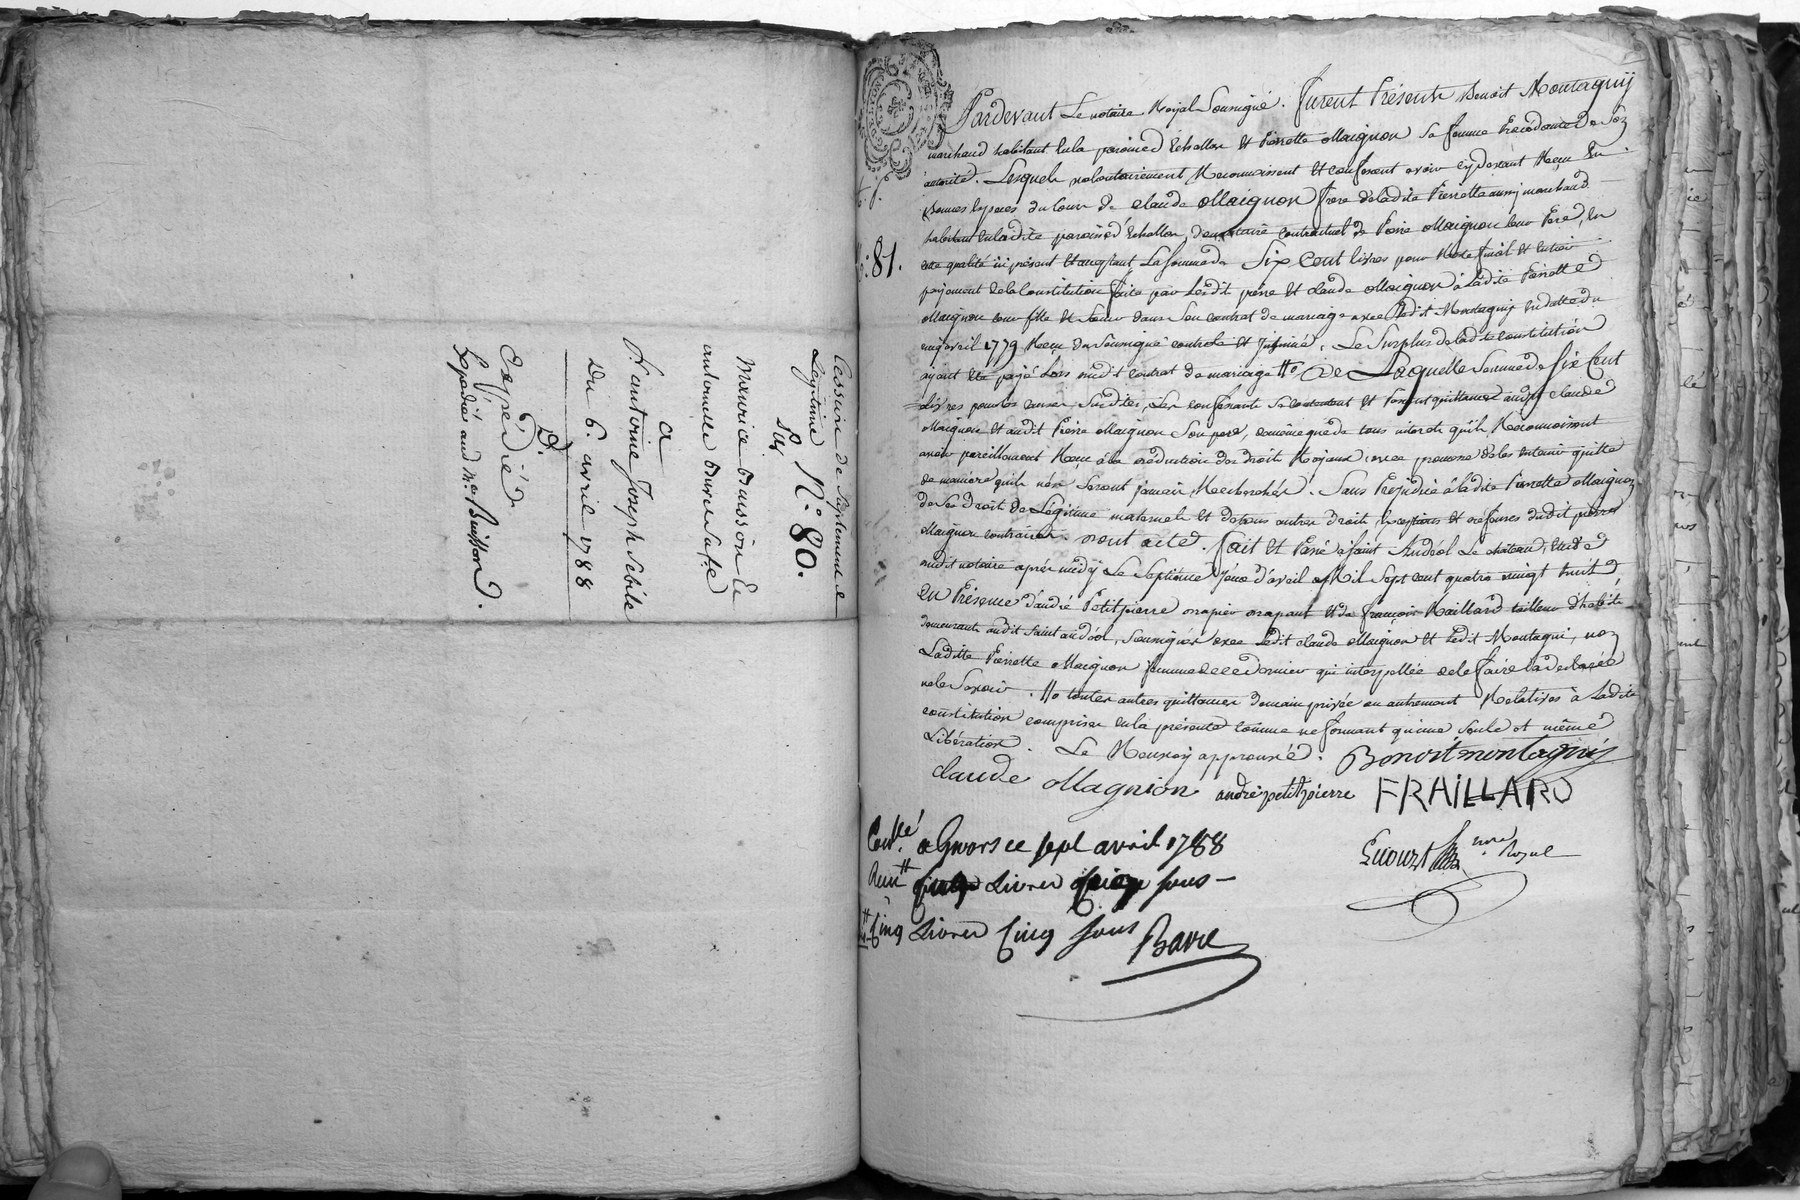 Cession de supplement de
Legitime N.° 80.
Par
Maurice Busson Et
antoinette
a
S.r antoine Joseph Sibile
Du 6. avril 1788
D.
Expédiéd
Expedié aud M.e Buisson.
Pardevant Le notaire Royal Soussigné. furent Présents Benoit Montagnÿ
marchand habitant En la paroissed Echallas Et Pierrette Maignon Sa femme Procédante De Son
autorité. Lesquels volontairement Reconnoissent Et confessent avoir cy devant Reçu En
Bonnes Especes du Cours De claude Maignon frere de ladite Pierrette aussy marchand
habitant En ladite paroissed Echallas, donataire contractuel de Pierre Maignon leur Pere, En
cette qualité ici présent Et acceptant La somme de Six Cent livres pour Reste final Et Entier
N.° 81.
payement de la Constitution faite par Lesdit pierre Et claude Maignon à Ladite Pierretted
Maignon leur fille Et Soeur dans Son contrat de mariage avec Ledit Montagny En datte du
cinq avril 1779 Reçu du Soussigné controlé Et Insinué. Le Surplus de ladite Constitution
ayant Eté payé Lors dudit contrat de mariage # De Laquelle Somme de Six Cent
Livres pour les causes Susdites, Ils confessants Se contentent Et En font quittance audit clauded
Maignon Et audit Pierre Maignon Son pere, de même que de tous interets quils Reconnoissent
avoir pareillement Reçu à la déduction des droits Royaux, avec promesse de les Entenir quitte
de maniere quils nen Seront jamais Recherchés. Sans Préjudice à ladite Pierrette Maignon
de Ses Droit de Légitime maternels Et de tous autres Droits, Exceptions Et defenses dudit pierre
Maignon contraires. Dont acted. fait Et Passé à Saint Andéol Le château, Etude
dudit notaire après midÿ Le Septieme Jour d'avril Mil Sept cent quatre vingt huit
En Présence d'andré Petitpierre Et de françois Raillard tailleur d'habits
demeurants audit Saint andéol, Soussignés avec Ledit claude Maignon Et Ledit Montagni, non
Laditte Pierrette Maignon femme de ce dernier qui interpellée de le faire a declaré
ne le Savoir. # toutes autres quittances de main privée ou autrement Relatives à Ladite
constitution comprises En la présente comme ne formant qu'une seule et même
Libération. Le Renvoy approuvé. Benoit montagniÿ
Claude Magnion andré petitpierre FRAILLARD
Con.lé a Givors ce sept avril 1788
nore Royal
Livres sous
Cinq Livres Cinq sous